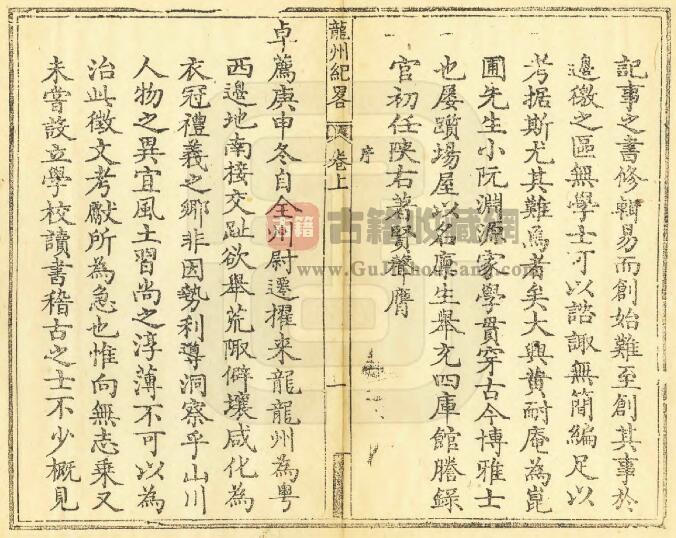 記事之書修輯易而創始難至創其事於
邊徼之區無學士可以諮諏無簡編足以
考据斯尤其難焉者矣大興黃耐庵為崑
圃先生小阮淵源家學貫穿古今博雅士
也屡躓場屋以名廪生舉充四庫館謄錄
官初任陝右著賢聲膺
序
龍州紀畧
卷上
一
卓薦庚申冬自全州尉遷擢来龍龍州為粤
西邊地南接交趾欲舉荒陬僻壤咸化為
衣冠禮義之鄉非因勢利導洞察乎山川
人物之異宜風土習尚之淳薄不可以為
治此徵文考獻所為急也惟向無志乘又
未嘗設立學校讀書稽古之士不少概見
古籍
古籍收藏網
www.GuJiShouCang.com